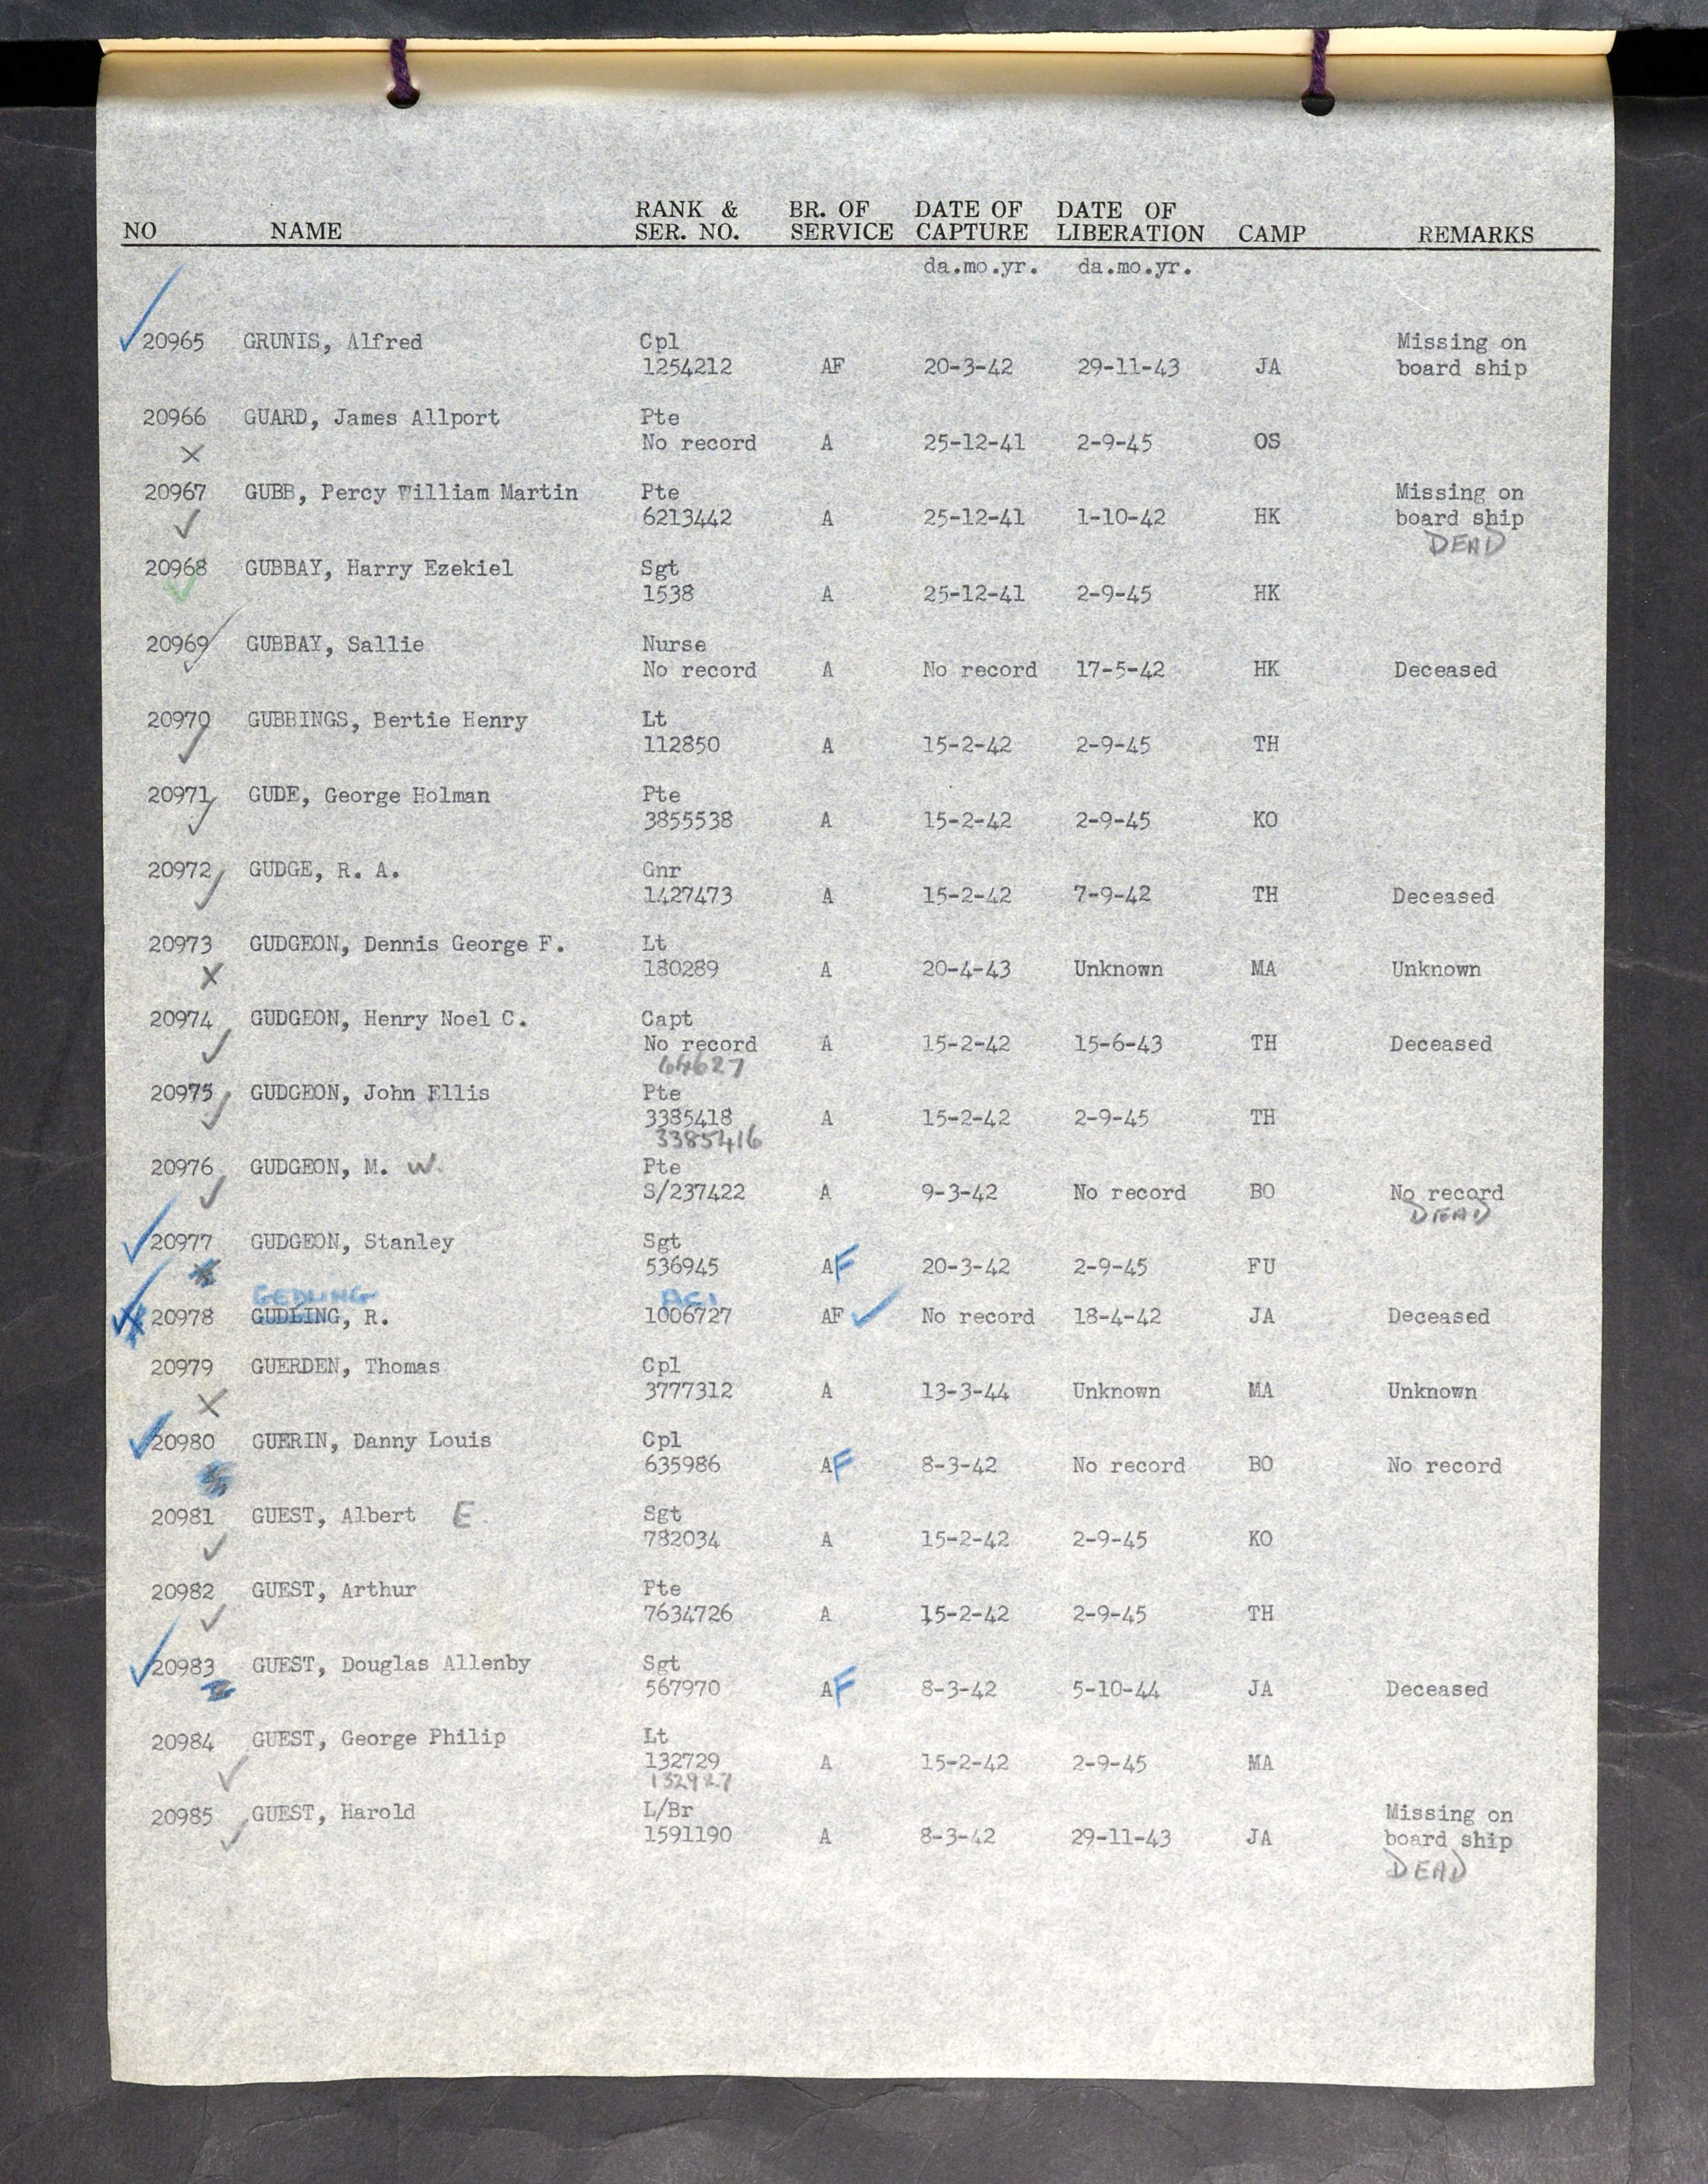 NO NAME RANK & SER. NO. BR. OF SERVICE DATE OF CAPTURE DATE OF LIBERATION CAMP REMARKS
da.mo.yr. da.mo.yr.
20965 GRUNIS, Alfred Cpl Missing on
1254212 AF 20-3-42 29-11-43 JA board ship
20966 GUARD, James Allport Pte
No record A 25-12-41 2-9-45 OS
20967 GUBB, Percy William Martin Pte Missing on
6213442 A 25-12-41 1-10-42 HK board ship
DEAD
20968 GUBBAY, Harry Ezekiel Sgt
1538 A 25-12-41 2-9-45 HK
20969 GUBBAY, Sallie Nurse
No record A No record 17-5-42 HK Deceased
20970 GUBBINGS, Bertie Henry Lt
112850 A 15-2-42 2-9-45 TH
20971 GUDE, George Holman Pte
3855538 A 15-2-42 2-9-45 KO
20972 GUDGE, R. A. Gnr
1427473 A 15-2-42 7-9-42 TH Deceased
20973 GUDGEON, Dennis George F. Lt
180289 A 20-4-43 Unknown MA Unknown
20974 GUDGEON, Henry Noel C. Capt
No record A 15-2-42 15-6-43 TH Deceased
64627
20975 GUDGEON, John Ellis Pte
3385418 A 15-2-42 2-9-45 TH
3385416
20976 GUDGEON, M. W. Pte
S/237422 A 9-3-42 No record BO No record
DEAD
20977 GUDGEON, Stanley Sgt
536945 AF 20-3-42 2-9-45 FU
GEDLING AC1
20978 GUDLING, R. 1006727 AF No record 18-4-42 JA Deceased
20979 GUERDEN, Thomas Cpl
3777312 A 13-3-44 Unknown MA Unknown
20980 GUERIN, Danny Louis Cpl
635986 AF 8-3-42 No record BO No record
20981 GUEST, Albert E. Sgt
782034 A 15-2-42 2-9-45 KO
20982 GUEST, Arthur Pte
7634726 A 15-2-42 2-9-45 TH
20983 GUEST, Douglas Allenby Sgt
567970 AF 8-3-42 5-10-44 JA Deceased
20984 GUEST, George Philip Lt
132729 A 15-2-42 2-9-45 MA
132927
20985 GUEST, Harold L/Br Missing on
1591190 A 8-3-42 29-11-43 JA board ship
DEAD